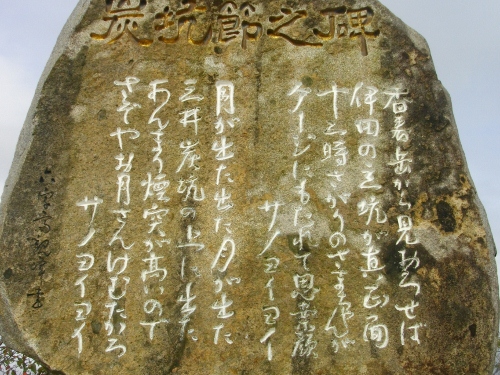 炭坑節之碑
香春岳から見おろせば
伊田の立坑が真正面
十二時さがりのさまちゃんが
ケージにもたれて思案顔
サノヨイヨイ
月が出た出た月が出た
三井炭坑の上に出た
あんまり煙突が高いので
さぞやお月さんけむたかろ
サノヨイヨイ